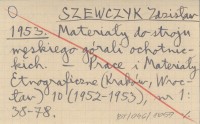 SZEWCZYK Zdzisław
1953. Materiały do stroju
męskiego górali ochotnic-
kich. Prace i Materiały
Etnograficzne (Kraków, Wroc-
ław) 10 (1952-1953), nr 1:
38-78.